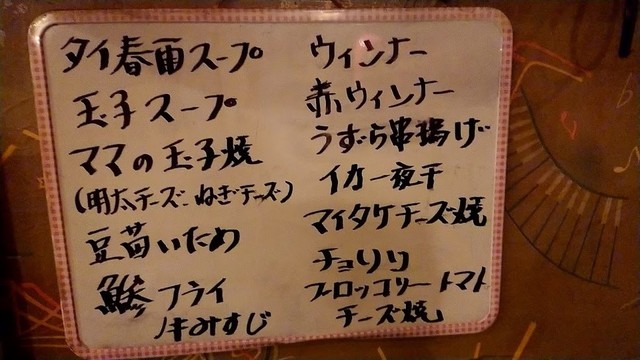 タイ春雨スープ
玉子スープ
ママの玉子焼
(明太チーズ・ねぎチーズ)
豆苗いため
鯵フライ
牛みすじ
ウィンナー
赤ウィンナー
うずら串揚げ
イカ一夜干
マイタケチーズ焼
チョリソ
ブロッコリートマト
チーズ焼